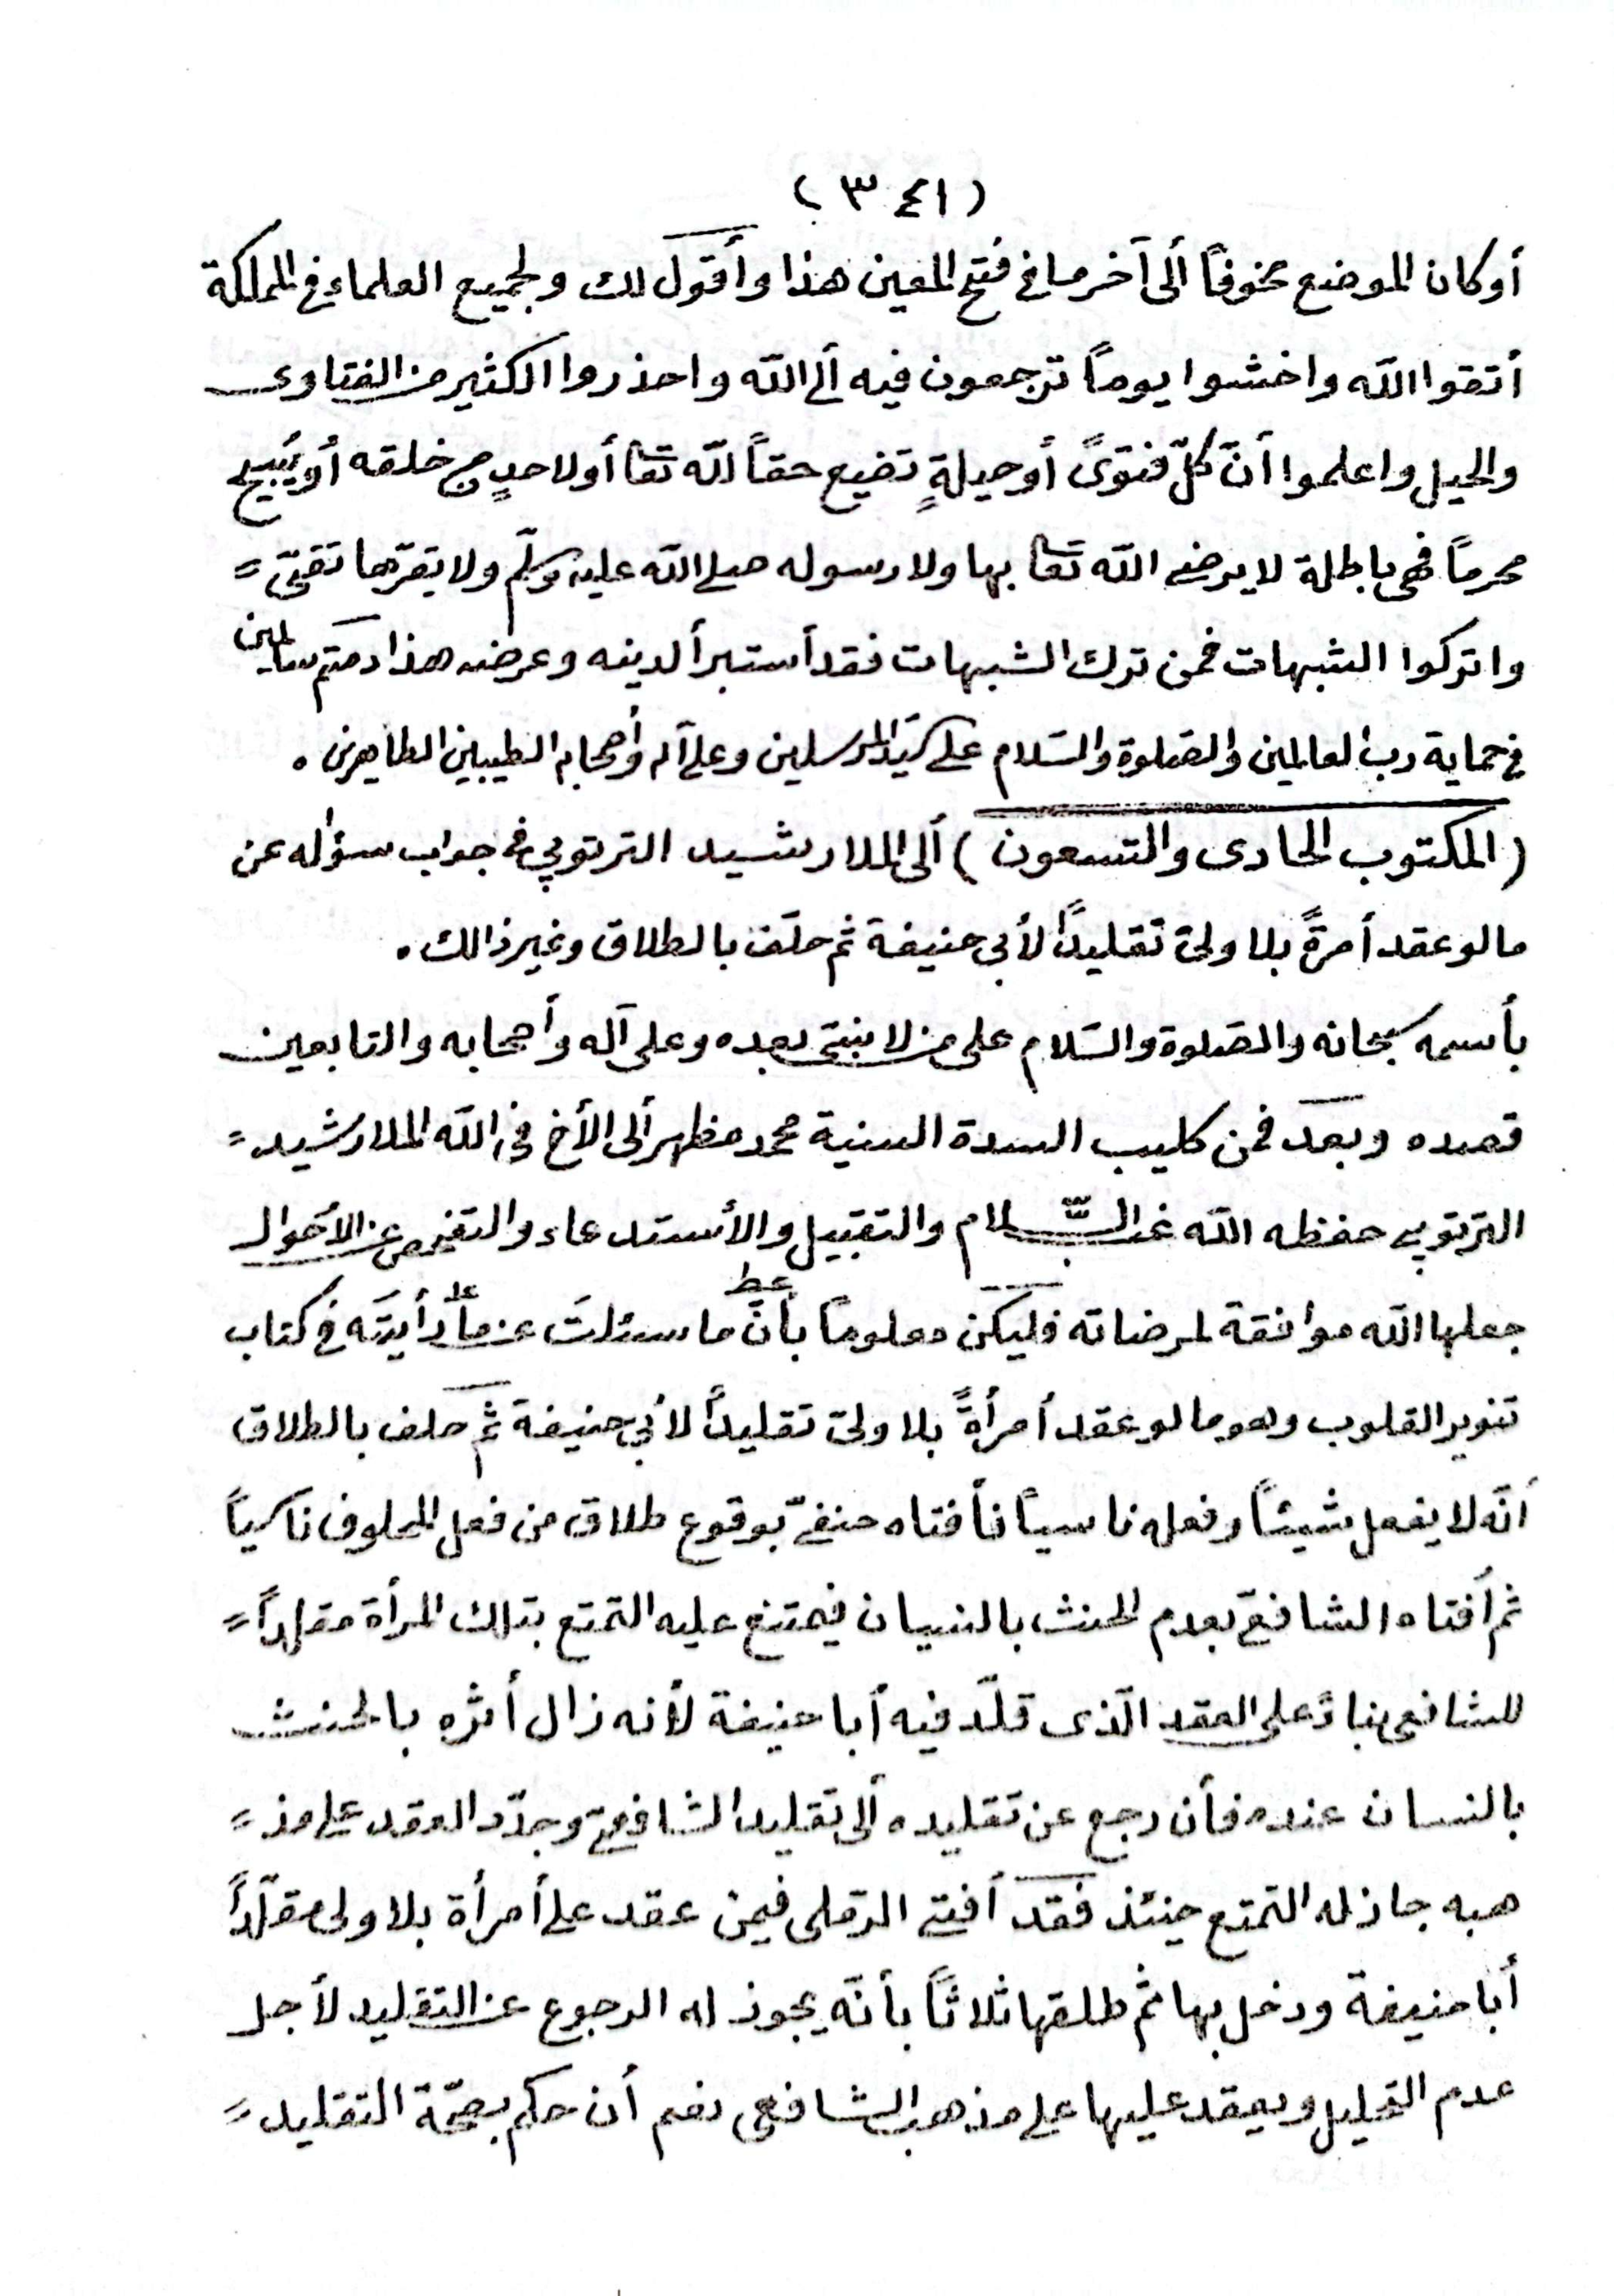 ( ٣٤١ )
أو كان الموضع مخوفاً ألى آخر ما في فتح المعين هذا وأقول لك ولجميع العلماء في المملكة
أتقوا الله واخشوا يوماً ترجعون فيه ألى الله واحذروا الكثير من الفتاوى
والحيل واعلموا أنّ كلّ فتوىً أو حيلةٍ تضيع حقاً لله تعا أو لاحدٍ من خلقه أو يُبيح
محرماً فهى باطلة لا يرضى الله تعا بها ولا رسوله صلى الله عليه وسلّم ولا يقرّها تقىّ =
واتركوا الشبهات فمن ترك الشبهات فقد أستبرأ لدينه وعرضه هذا دمتم سالمين
في حماية رب العالمين والصّلوة والسّلام على سيّد المرسلين وعلى آله وأصحابه الطيبين الطاهرين .
( المكتوب الحادى والتسعون ) ألى الملا رشيد الترتوپي في جواب سؤاله عن
ما لو عقد أمرةً بلا ولىّ تقليداً لأبي حنيفة ثم حلَف بالطلاق وغير ذالك .
بأسمه سبحانه والصّلوة والسّلام على من لا نبىّ بعده وعلى آله وأصحابه والتابعين
قصده وبعد فمن كليب السدة السنية محمد مظهر ألى الأخ في الله الملا رشيد =
الترتوپي حفظه الله غبّ السّلام والتقبيل والأستدعاء والتفحص عن الأحوال
جعلها الله موافقة لمرضاته فليكن معلوماً بأنّ ما سئلتَ عن ما رأيتَه في كتاب
تنوير القلوب وهو ما لو عقد أمرأةً بلا ولىّ تقليداً لأبي حنيفة ثم حلف بالطلاق
أنّه لا يفعل شيئاً وفعله ناسياً فأفتاه حنفىّ بوقوع طلاق من فعل المحلوف ناسياً
ثم أفتاه الشافعىّ بعدم الحنث بالنسيان فيمتنع عليه التمتع بتلك المرأة مقلداً =
للشافعى بناءً على العقد الّذى قلّد فيه أبا حنيفة لأنه زال أثره بالحنث
بالنسيان عنده فأن رجع عن تقليده ألى تقليد الشافعىّ وجدّد العقد على مذ =
هبه جاز له التمتع حينئذ فقد أفتى الرّملى فيمن عقد على أمرأة بلا ولى مقلّداً
أبا حنيفة ودخل بها ثم طلقها ثلاثاً بأنّه يجوز له الرجوع عن التقليد لأجل
عدم التحليل ويعقد عليها على مذهب الشافعى نعم أن حكم بصحّة التقليد =